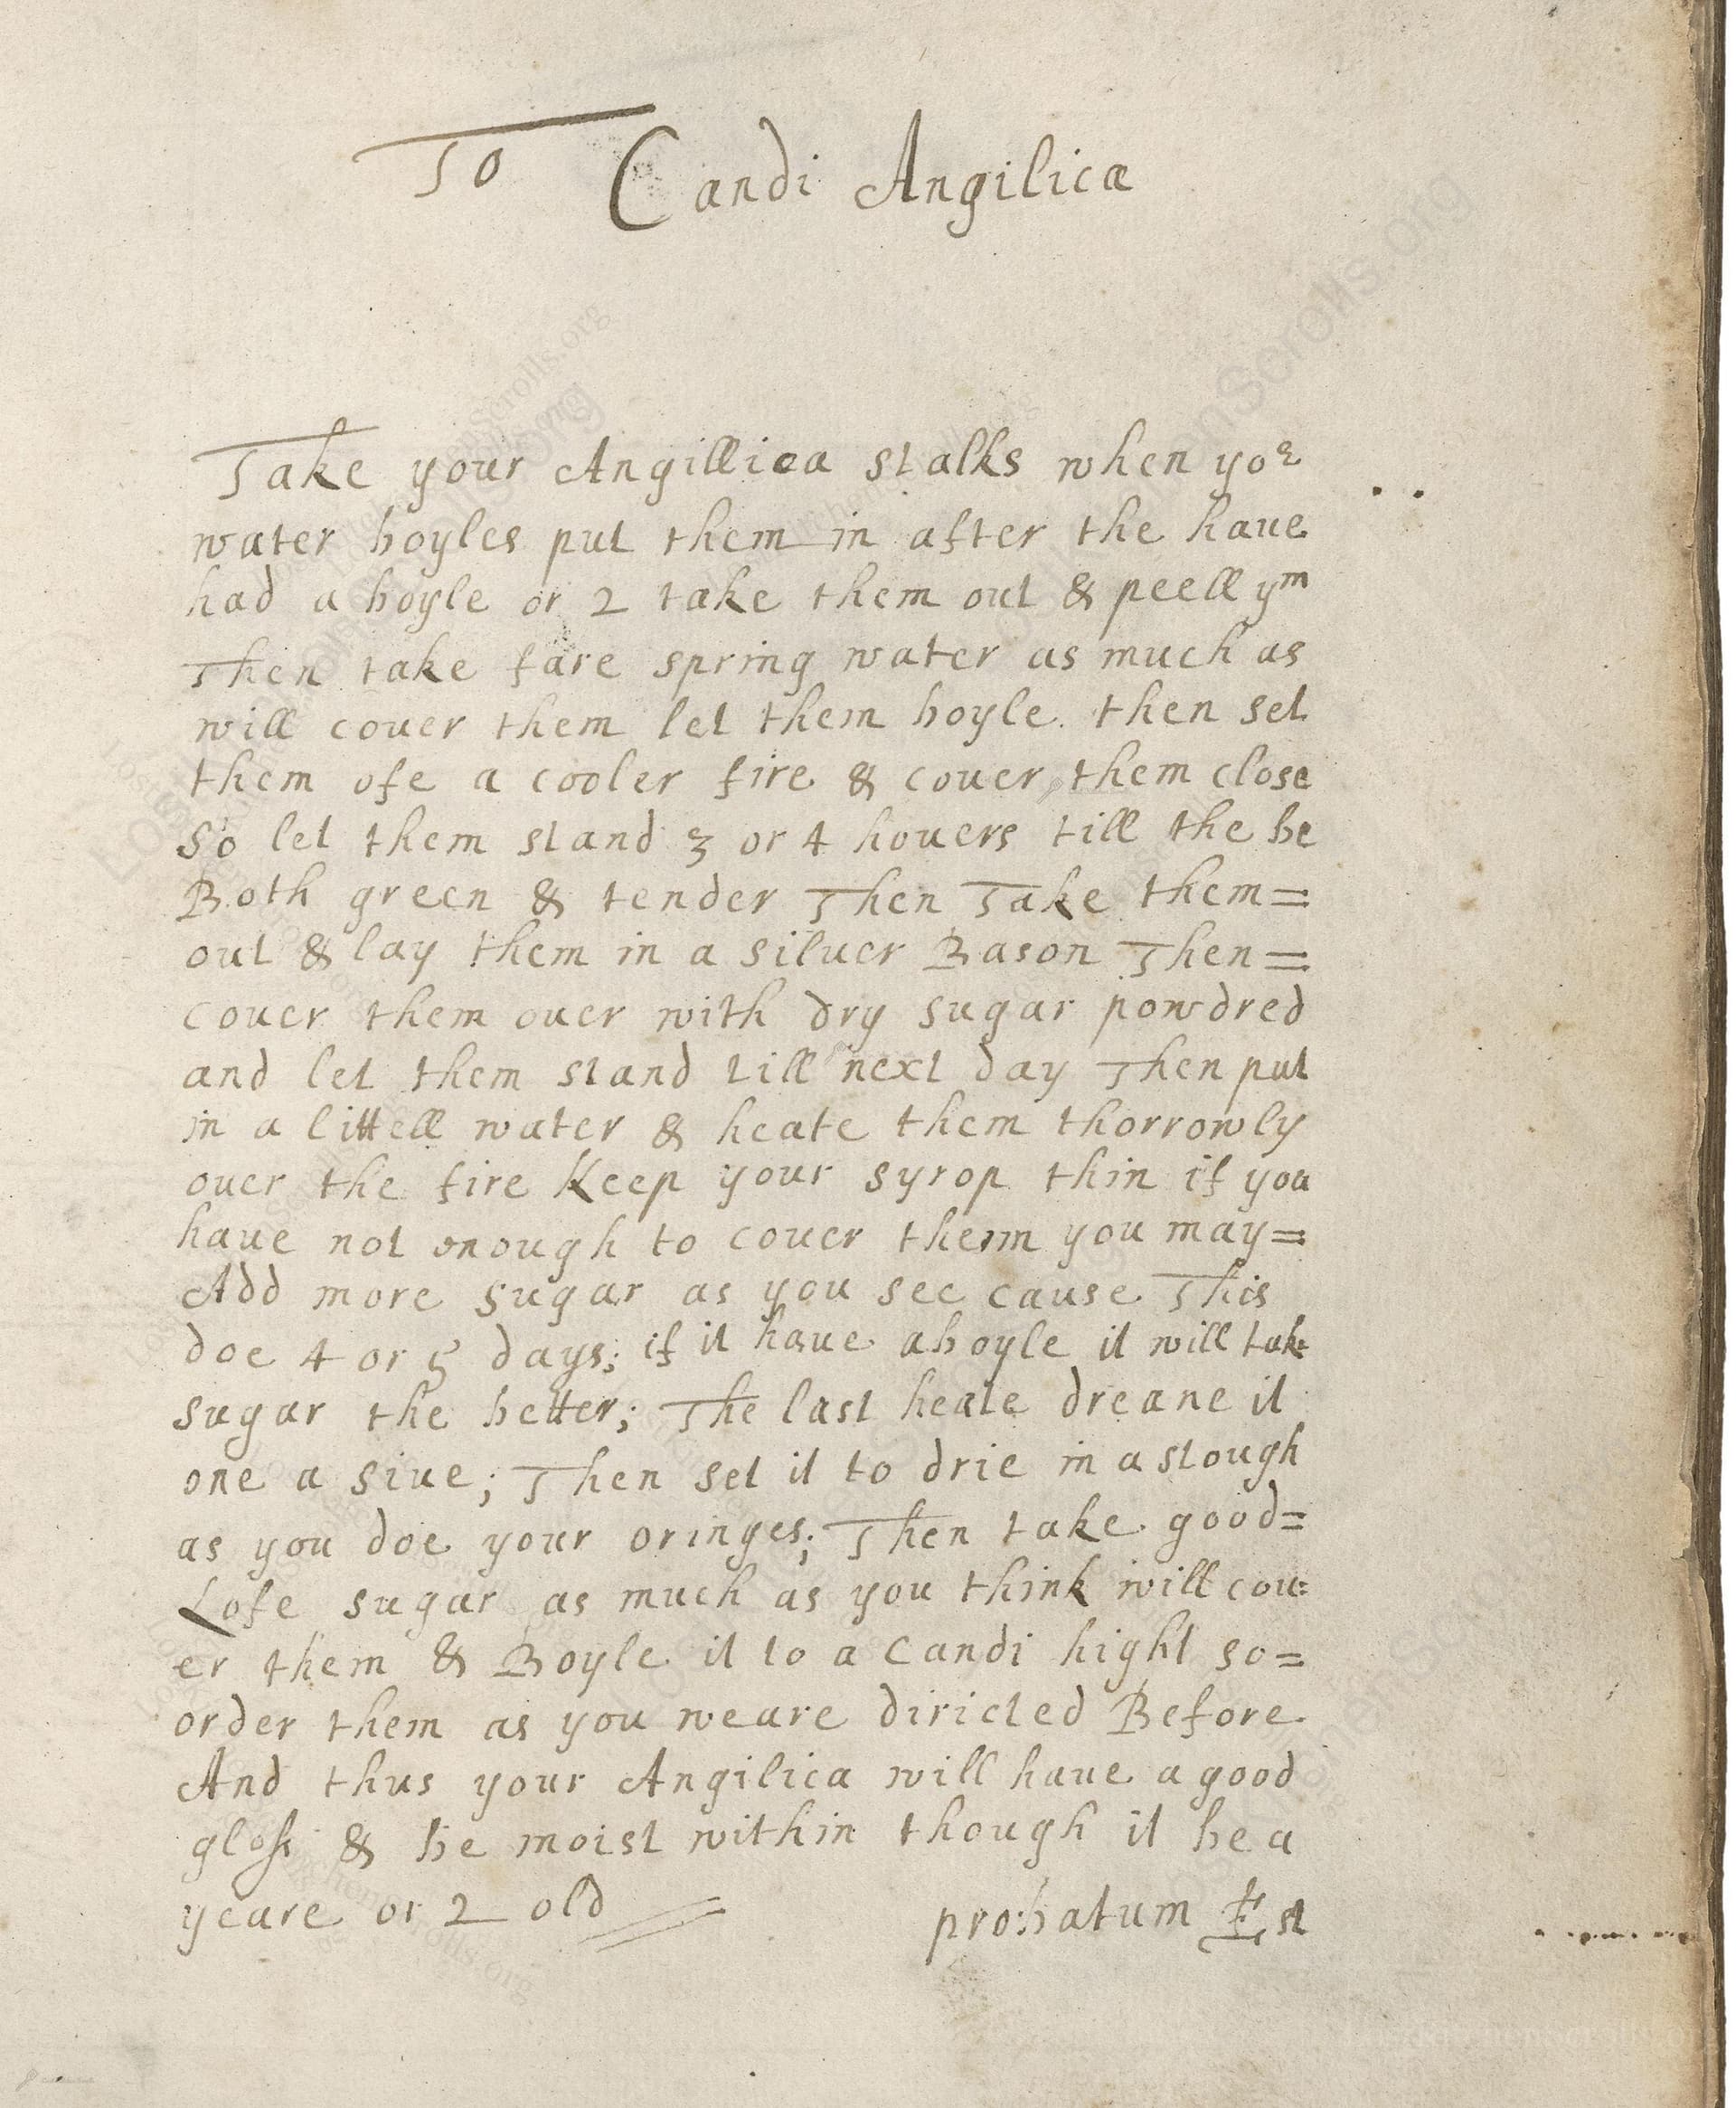 To Candi Angilica
Take your Angillica stalks when yor
water boyles put them in after the haue
had a boyle or 2 take them out & peell ym
Then take fare spring water as much as
will couer them let them boyle. then set
them ofe a cooler fire & couer them close
so let them stand 3 or 4 houers till the be
Both green & tender Then Take them=
out & lay them in a siluer Bason Then=
couer them ouer with dry sugar powdred
and let them stand till next day Then put
in a littell water & heate them thorrowly
ouer the fire Keep your syrop thin if you
haue not enough to couer them you may=
Add more sugar as you see cause This
doe 4 or 5 days; if it haue a boyle it will take
sugar the better; The last heate dreane it
one a siue; Then set it to drie in a stough
as you doe your oringes; Then take good=
Lofe sugar as much as you think will cou=
er them & Boyle it to a Candi hight so=
order them as you weare diricted Before
And thus your Angilica will haue a good
gloss & be moist within though it be a
yeare or 2 old probatum Est